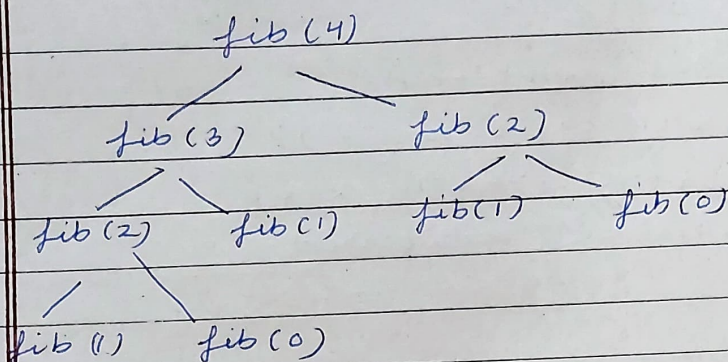 fib (4)
fib (3) fib (2)
fib (2) fib (1) fib (1) fib (0)
fib (1) fib (0)